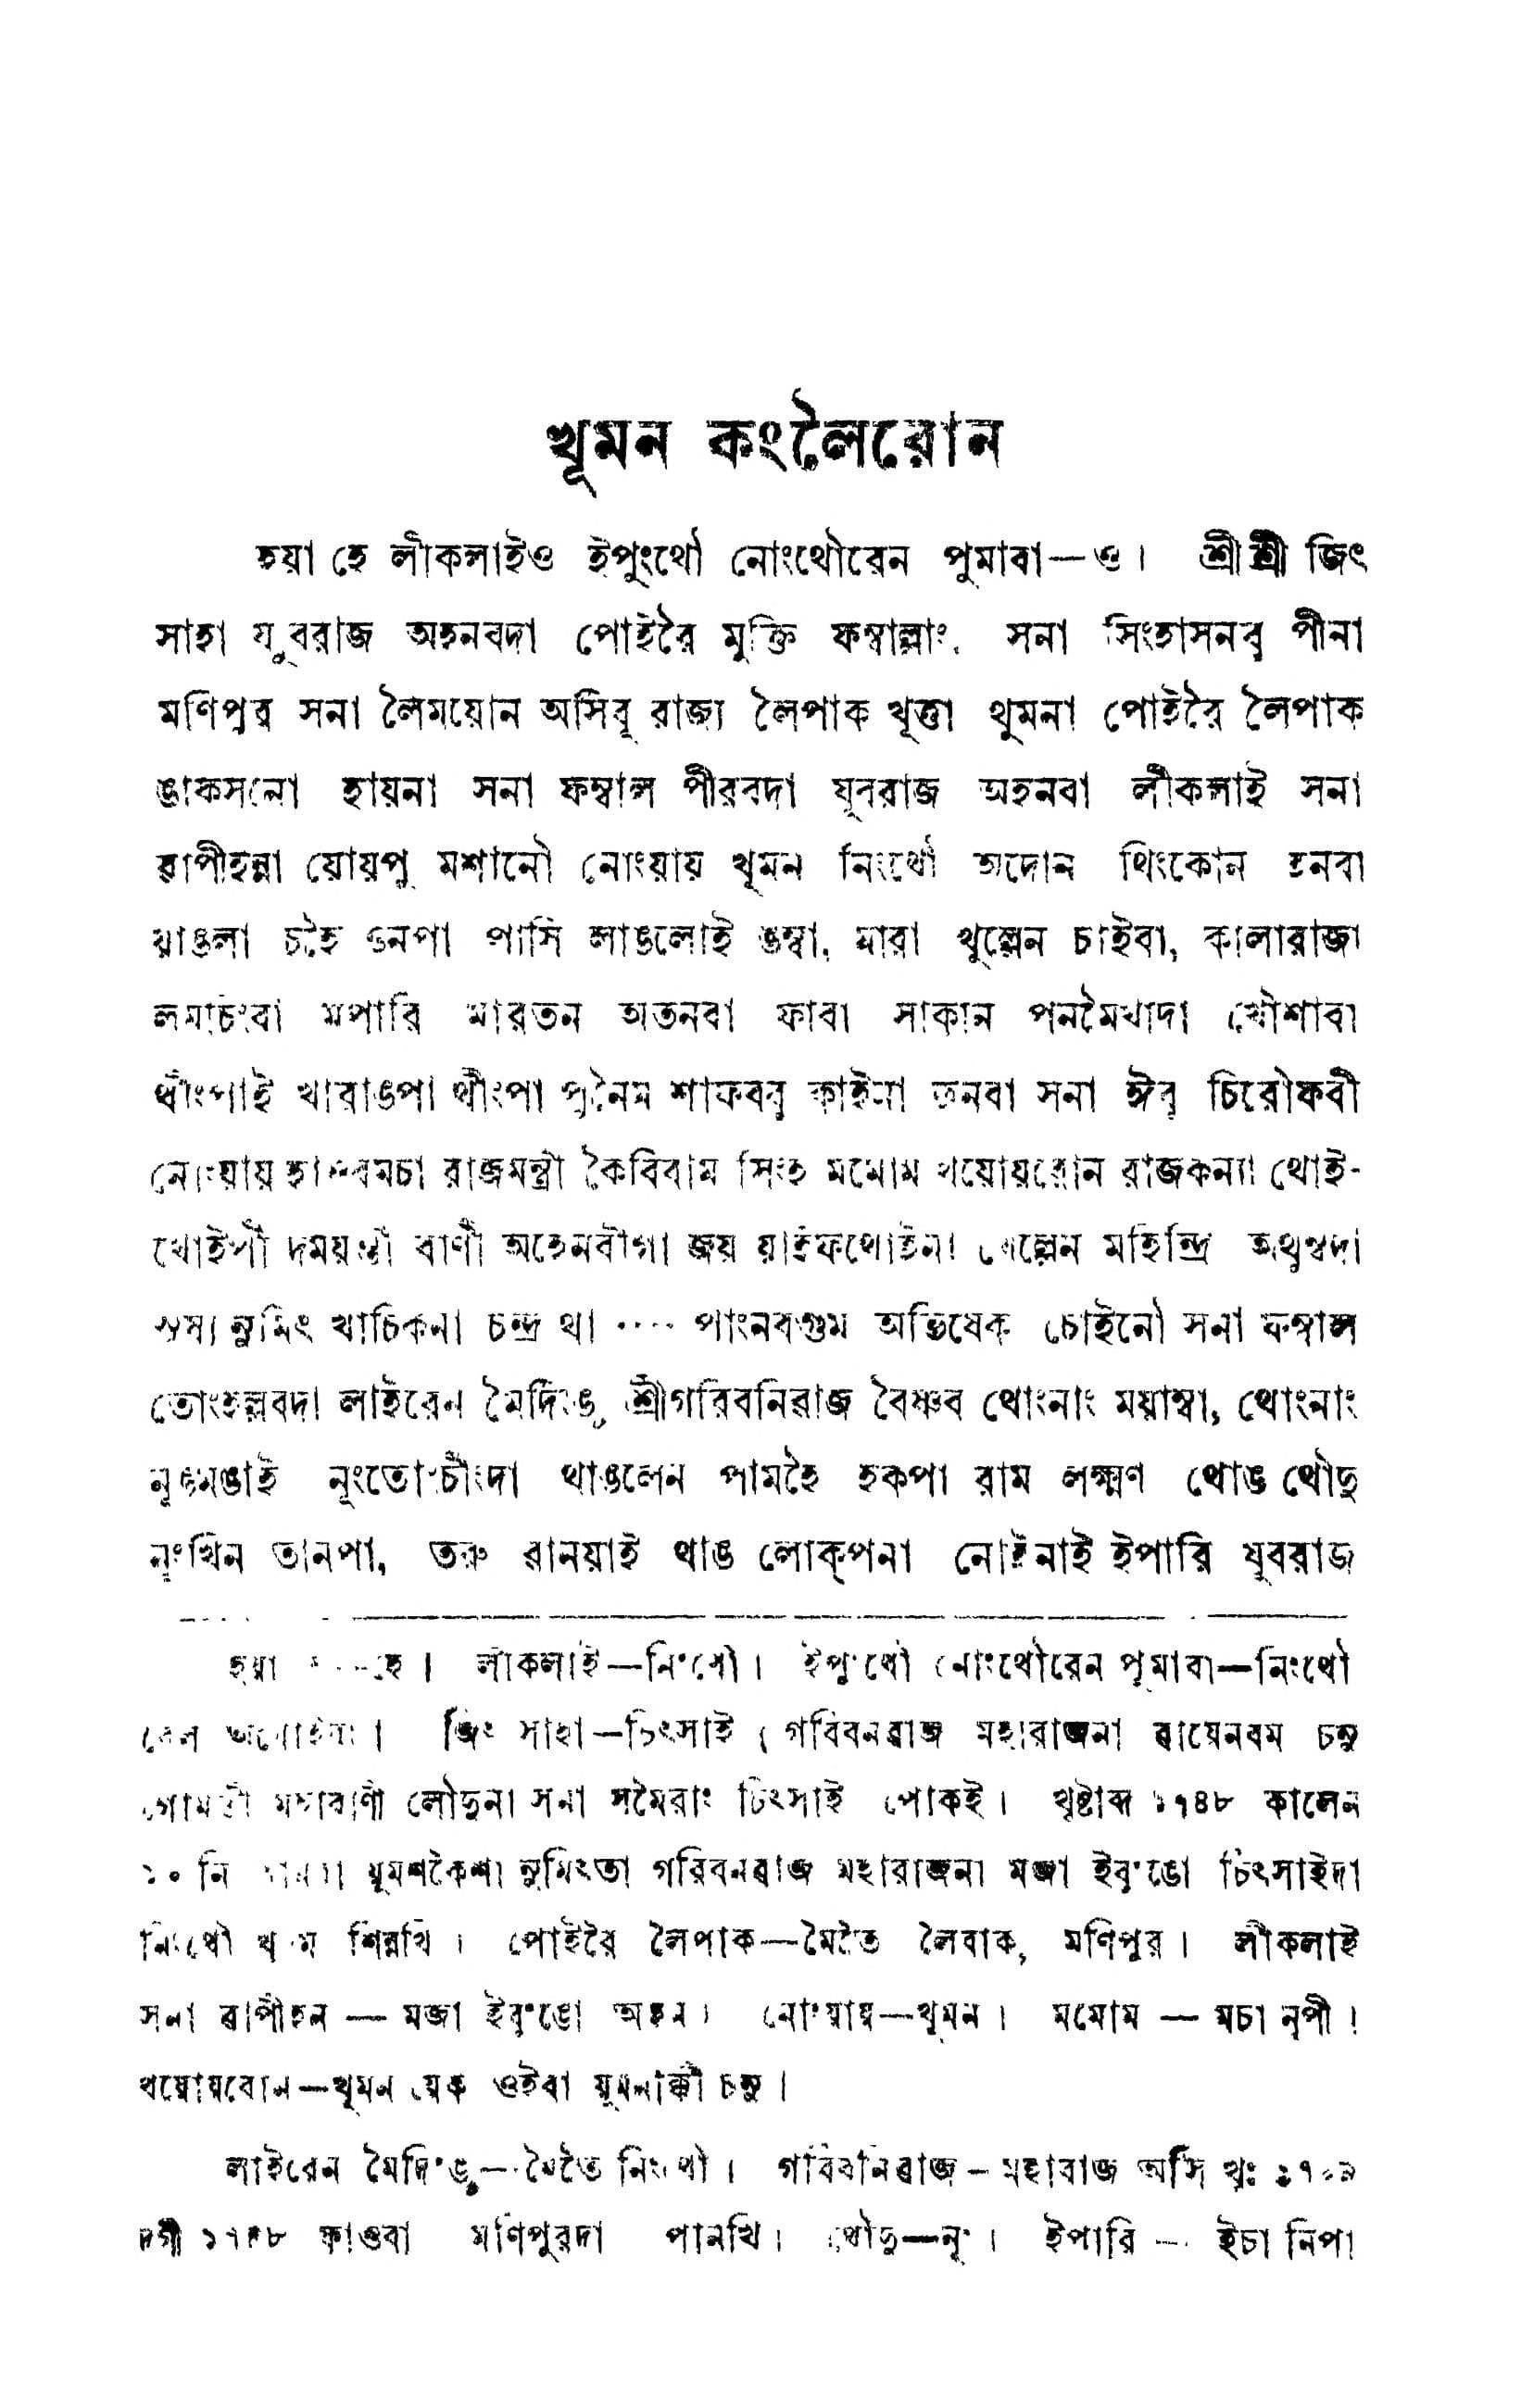 খূমন কংলৈরোন
হয়া হে লীকলাইও ইপুংথৌ নোংথৌরেন পুমাবা—ও। শ্রীশ্রী জিৎ
সাহা যুবরাজ অহনবদা পোইরৈ মুক্তি ফম্বাল্লাং, সনা সিংহাসনবু পীনা
মণিপুর সনা লৈময়োন অসিবু রাজ্য লৈপাক খূত্তা থুমনা পোইরৈ লৈপাক
ঙাকসনো হায়না সনা ফম্বাল পীরবদা যুবরাজ অহনবা লীকলাই সনা
ৱাপীহন্না য়োয়পু মশানৌ নোংয়ায় খূমন নিংথৌ অদোন থিংকোন তনবা
য়াঙলা চহৈ ওনপা পাসি লাঙলোই ঙম্বা, মারা খুল্লেন চাইবা, কালারাজা
লমাচংবা মপারি মারতন অতনবা ফাবা সাকান পনমৈখাদা খৌশাবা
থীংপাই খারাঙপা থীংপা পুনৈম শাফববু কাইনা তনবা সনা ঈবু চিরৌফবী
নোংয়ায় রাজমন্ত্রী কৈবিবাম সিংহ মমোম খয়োয়রোন রাজকন্যা থোই-
থোইপী দময়ন্তী রাণী অহেনবীগা জয় য়াইফথোইনা মহিন্দ্রি অথুম্বদা
নুমিৎ খাচিকনা চন্দ্র থা .... পাংনবগুম অভিষেক চোইনৌ সনা ফম্বাল
তোংহল্লবদা লাইরেন মৈদিংঙু শ্রীগরিবনিৱাজ বৈষ্ণব থোংনাং ময়াম্বা, থোংনাং
নূংতোংচীংদা থাঙলেন পামহৈ হকপা রাম লক্ষ্মণ থোঙ থৌদু
নুংখিন তানপা, তরু ৱানয়াই থাঙ লোক্‌পনা নোইনাই ইপারি যুবরাজ
হয়া হে। লীকলাই—নিংথৌ। ইপুংথৌ নোংথৌরেন পুমাবা—নিংথৌ
জিৎ সাহা—চিৎসাই। গরিবনৱাজ মহারাজনা ৱায়েনবম চনু
গোমতী মহারাণী লৌদুনা সনা সমৈরাং চিৎসাই পোকই। খৃষ্টাব্দ ১৭৪৮ কালেন
১০ নি য়ুমশকৈশা নুমিৎতা গরিবনৱাজ মহারাজনা মজা ইবুংঙো চিৎসাইদা
নিংথৌ শিন্নখি। পোইরৈ লৈপাক—মৈতৈ লৈবাক, মণিপুর। লীকলাই
সনা ৱাপীহন — মজা ইবুংঙো অহন। নোংয়ায়—খূমন। মমোম — মচা নুপী।
খয়োয়রোন—খূমন য়েক ওইবা য়ুমনাক্কী চনু।
লাইরেন মৈদিংঙু—মৈতৈ নিংথৌ। গরিবনিৱাজ – মহারাজ অসি খৃঃ
দগী ফাওবা মণিপুরদা পানখি। থৌদু—নুং। ইপারি — ইচা নিপা